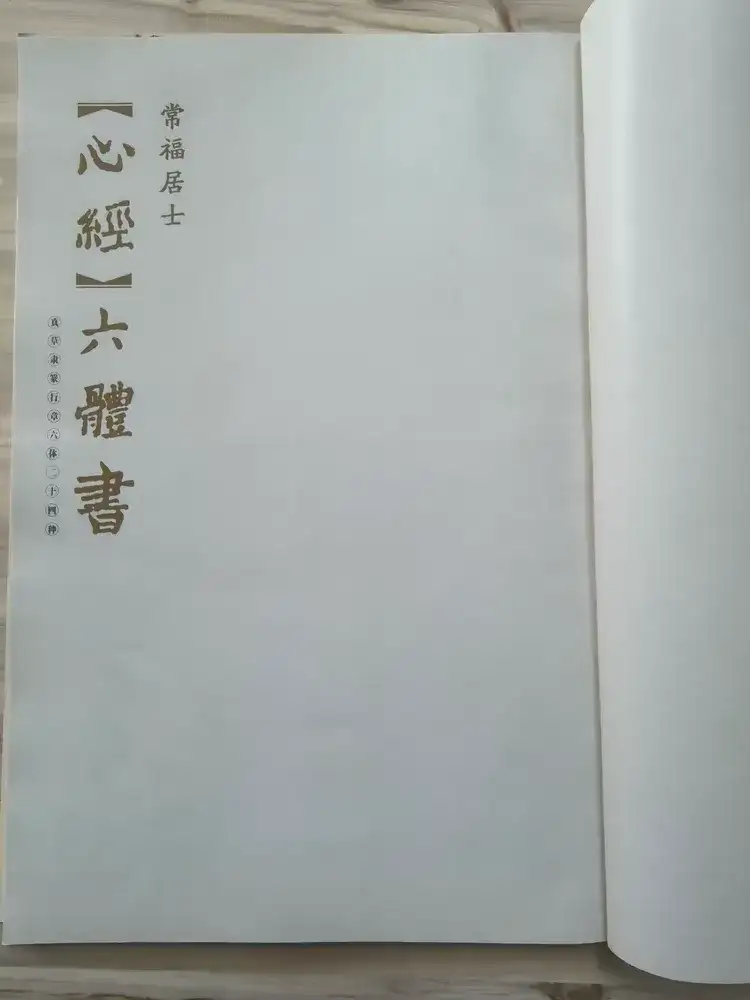 常福居士
【心經】六體書
真草隶篆行章六体二十四种